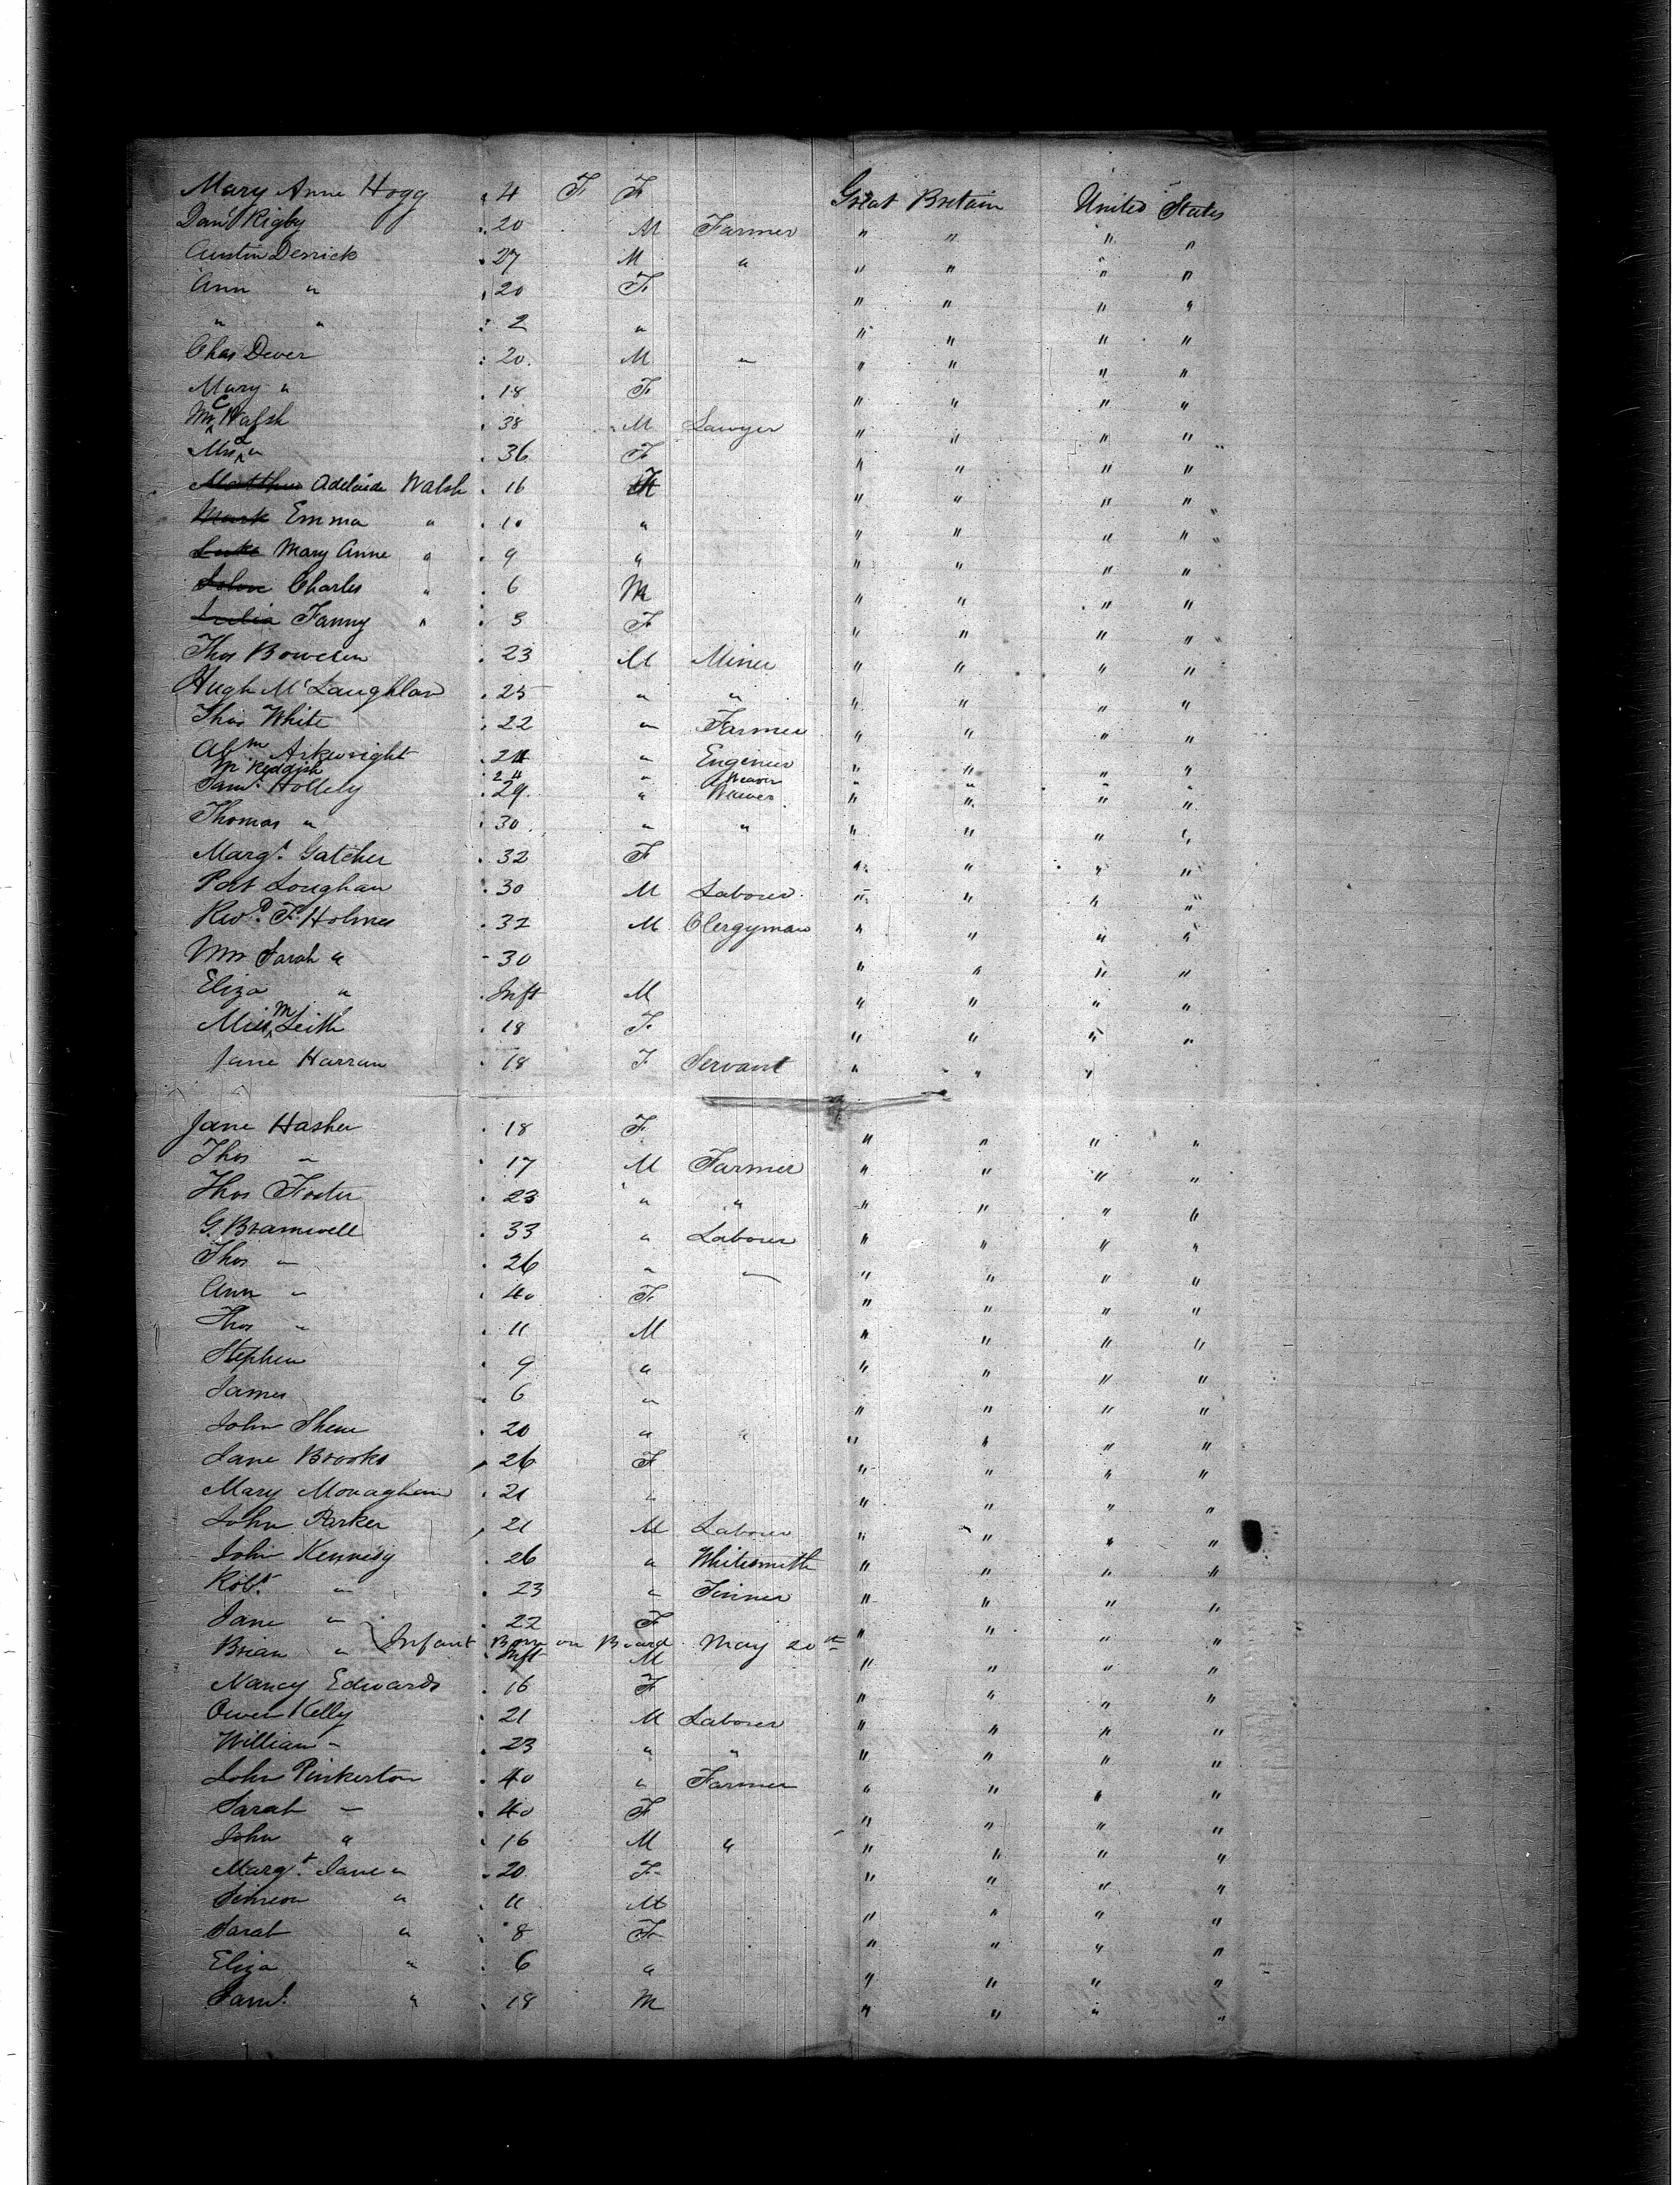 Mary Anne Hogg . 4 F F Great Britain United States
Danl Rigby . 20 M Farmer " " " "
Austin Derrick . 27 M " " " " "
Ann " . 20 F " " " "
" " . 2 " " " " "
Chas Dever . 20 M " " " " "
Mary " . 18 F " " " "
Mr C Walsh . 38 M Lawyer " " " "
Mrs " . 36 F " " " "
Matthew Adelaide Walsh . 16 F " " " "
Mark Emma " . 10 " " " " "
Luke Mary Anne " . 9 " " " " "
John Charles " . 6 M " " " "
Julia Fanny " . 3 F " " " "
Thos . 23 M Miner " " " "
Hugh McLaughlan . 25 " " " " " "
Thos White . 22 " Farmer " " " "
Abm Arkwright . 24 " Engineer " " " "
W Reddish . 24 " Weaver " " " "
Saml . 29 " Weaver " " " "
Thomas " . 30 " " " " " "
Margt Gatcher . 32 F " " " "
Pat Loughan . 30 M Laborer " " " "
Revd F. Holmes . 32 M Clergyman " " " "
Mrs Sarah " - 30 " " " "
Eliza " . Inft M " " " "
Miss M Leith . 18 F " " " "
Jane Harran . 18 F Servant " " "
Jane Hasher . 18 F " " " "
Thos " . 17 M Farmer " " " "
Thos Foster . 23 " " " " " "
G. Bramwell . 33 " Laborer " " " "
Thos " . 26 " " " " " "
Ann " . 40 F " " " "
Thos " . 11 M " " " "
Stephen . 9 " " " " "
James . 6 " " " " "
John . 20 " " " " " "
Jane Brooks . 26 F " " " "
Mary Monaghan . 21 " " " " "
John Parker . 21 M Laborer " " " "
John Kennedy . 26 " Whitesmith " " " "
Robt " . 23 " Tinner " " " "
Jane " . 22 F " " " "
Infant Born on Board May 20th
Brian " . Inft M " " " "
Nancy Edwards . 16 F " " " "
Owen Kelly . 21 M Laborer " " " "
William " . 23 " " " " " "
John Pinkerton . 40 " Farmer " " " "
Sarah " . 40 F " " " "
John " . 16 M " " " " "
Margt Jane " . 20 F " " " "
Simeon " . 11 M " " " "
Sarah " . 8 F " " " "
Eliza " . 6 " " " " "
Saml " . 18 M " " " "